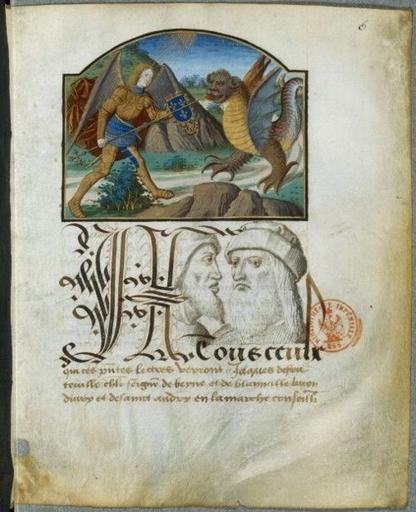 6
A Tous ceulx
qui ces pntes lectres verront Jaques destou
teuille chlr seigneur de beyne et de blainuille baron
diury et de saint andry en la marche conseill